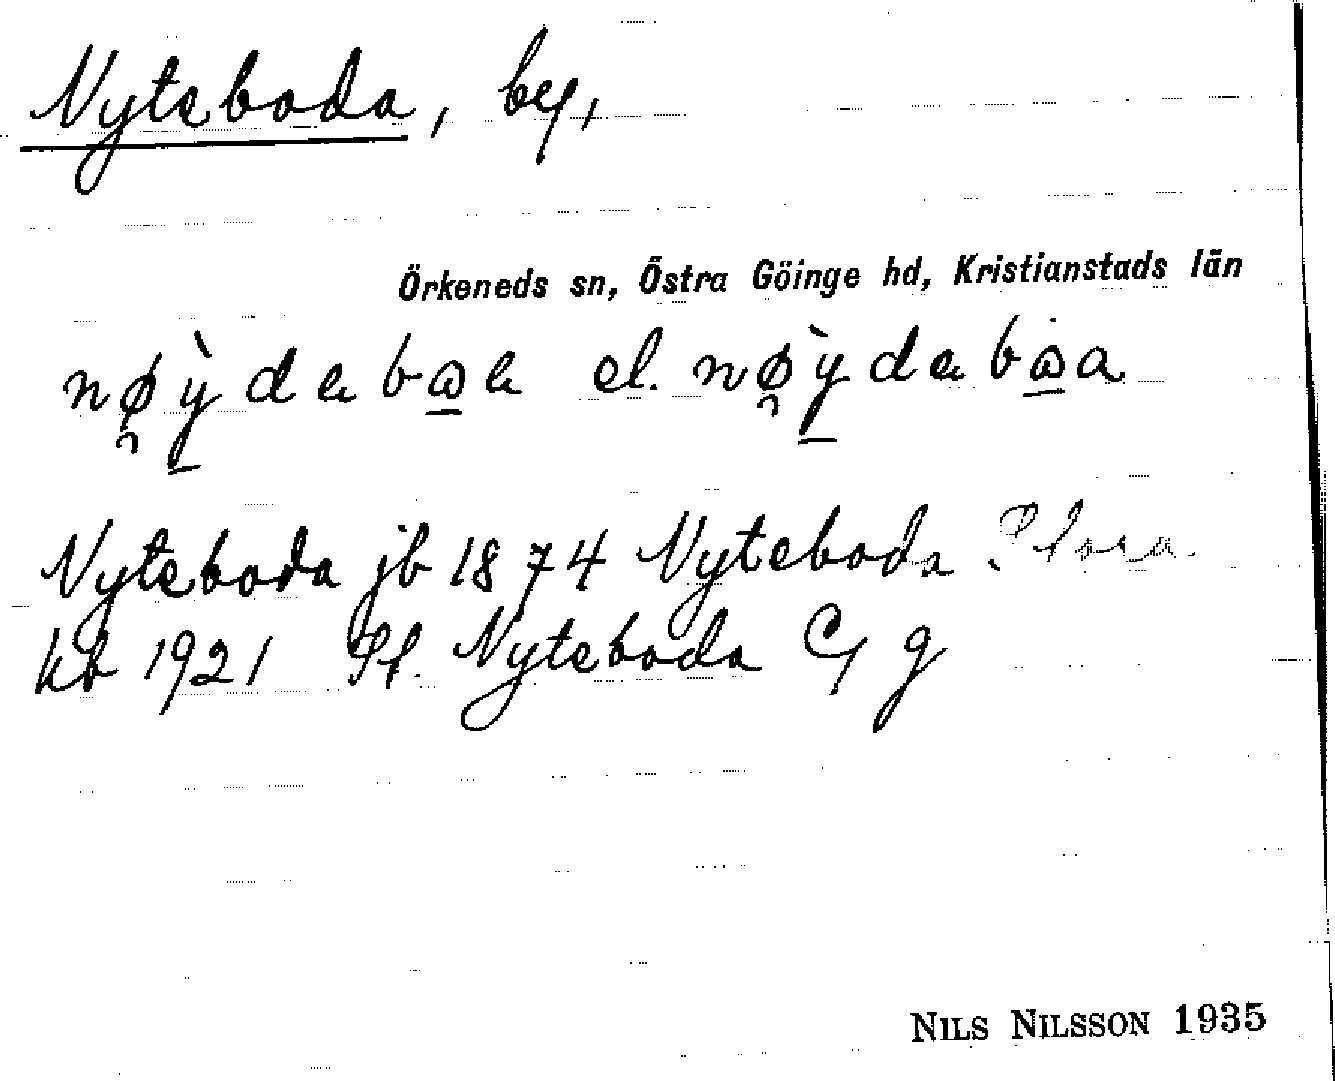 Nyteboda, by,
Örkeneds sn, Östra Göinge hd, Kristianstads län
nø̯̀ydabωa el. nø̯̀ydabωa
Nyteboda jb 1874 Nyteboda Stora
kb 1921 St. Nyteboda C, g
NILS NILSSON 1935